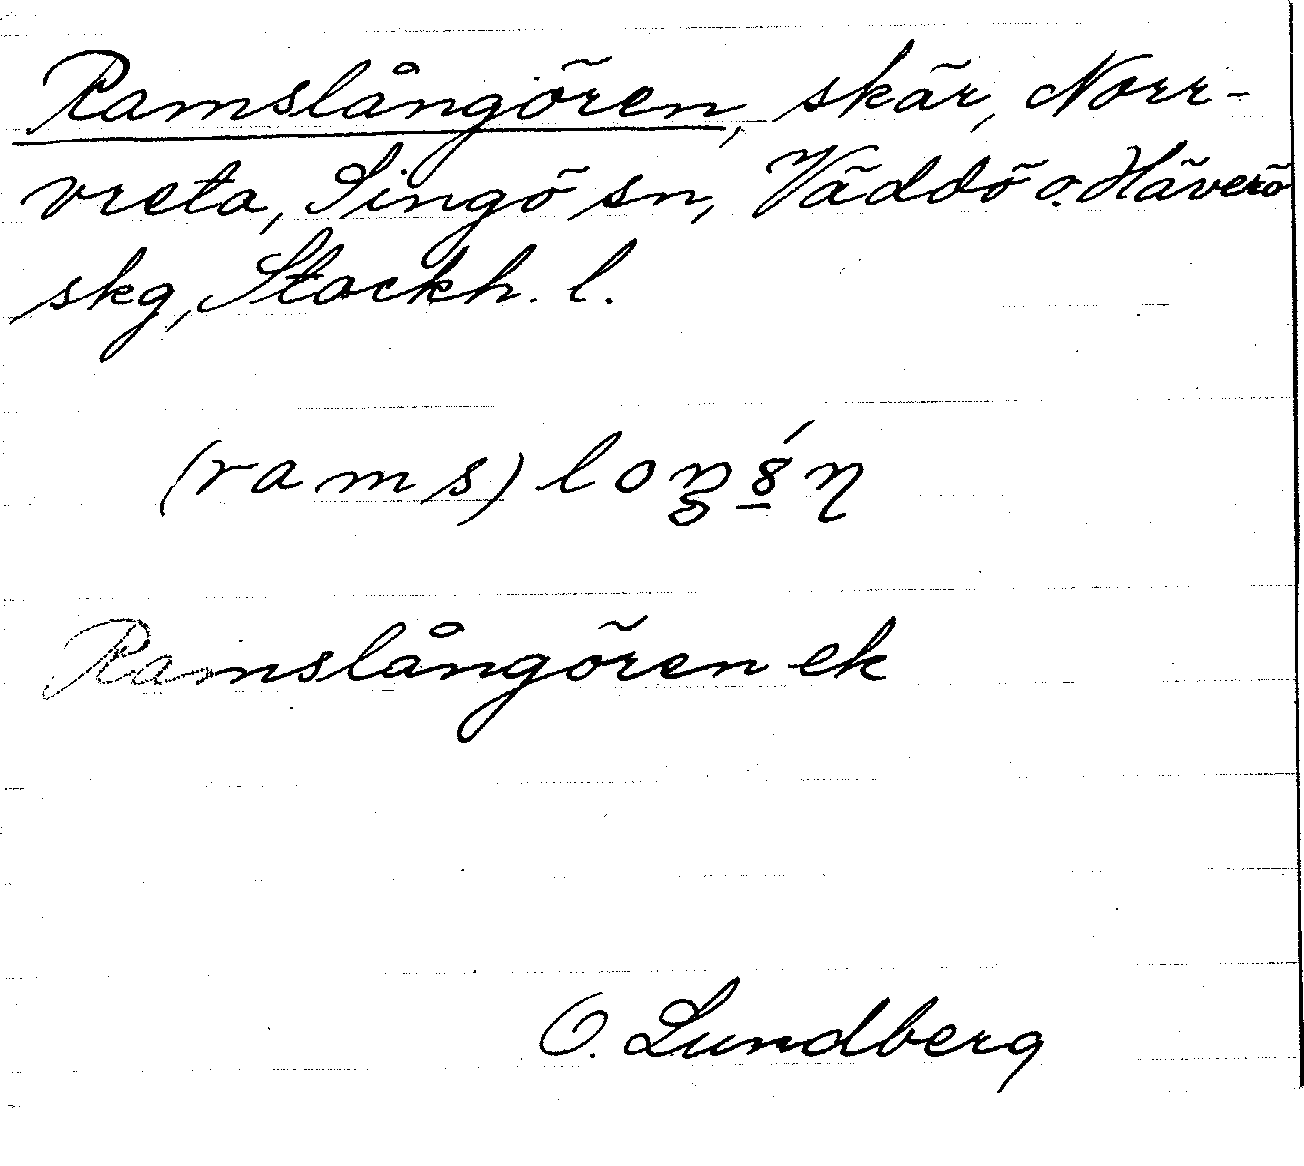 Ramslångören, skär, Norr-
vreta, Singö sn, Väddö o. Häverö
skg, Stockh. l.
(rams)
Ramslångören ek
O. Lundberg